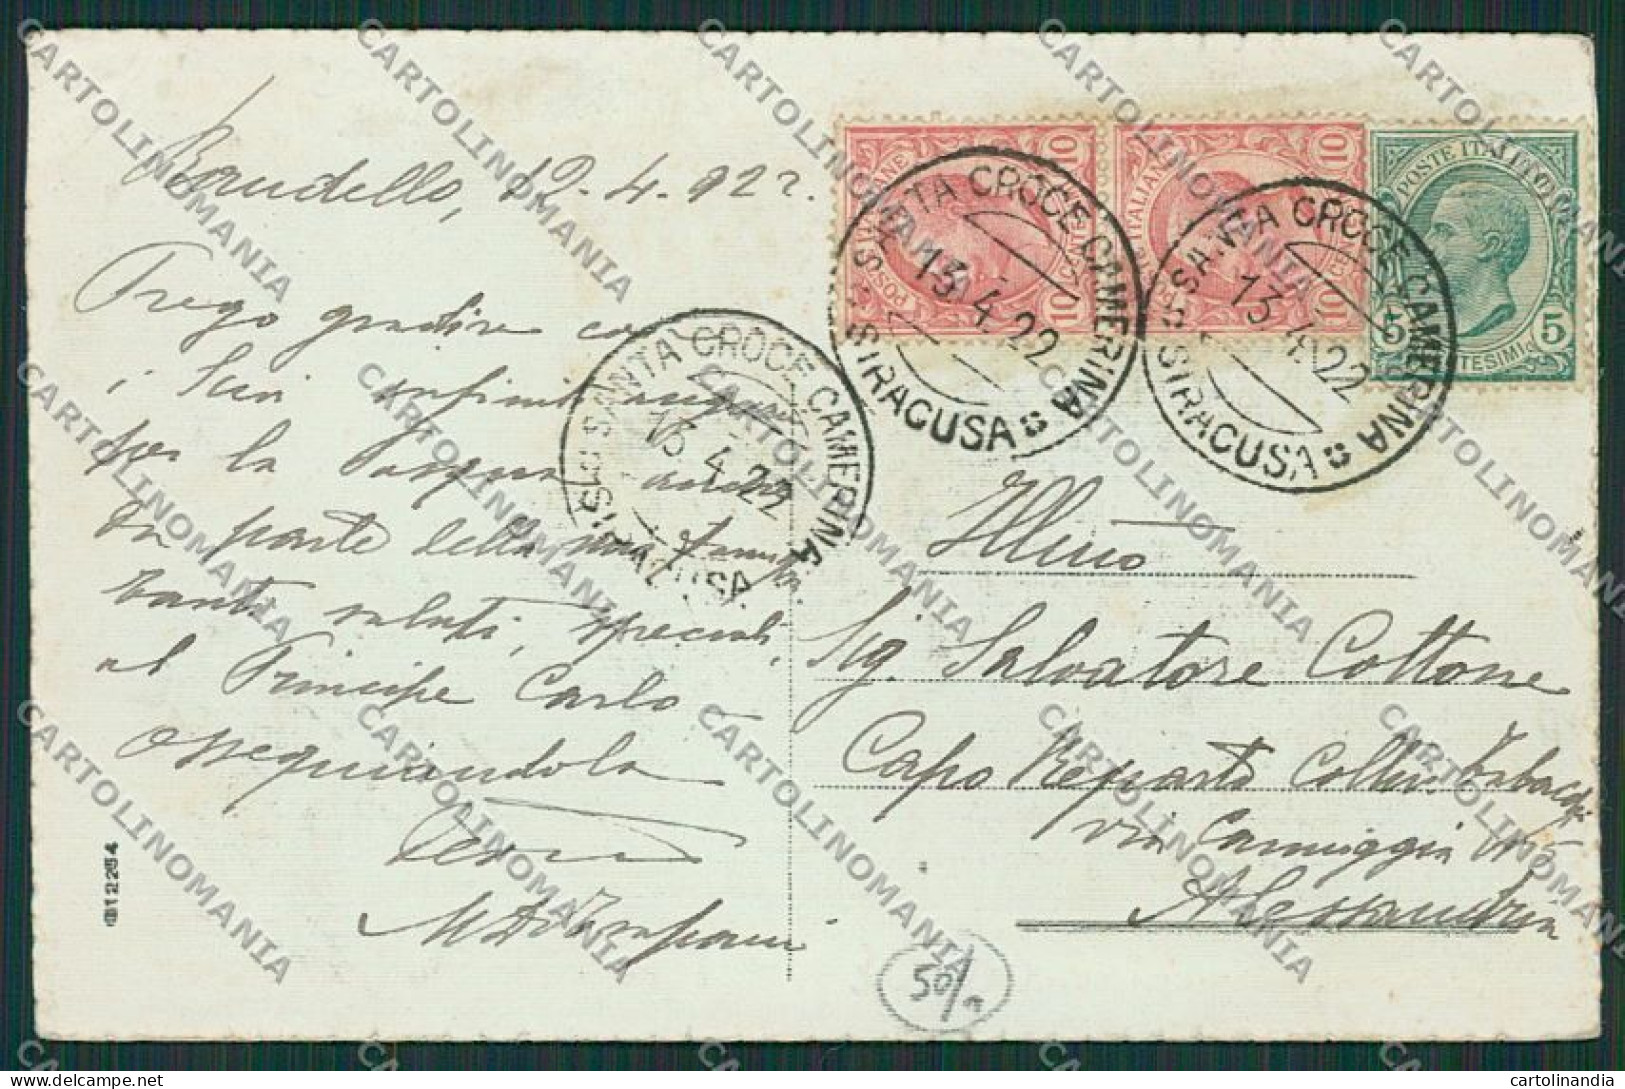 Randello, 12-4-922.
Prego gradire con
i Suoi
per la Pasqua
da parte della mia famiglia.
Tanti saluti, speciali
al Principe Carlo
ossequiandola
SANTA CROCE CAMERINA
13.4.22
SIRACUSA
SANTA CROCE CAMERINA
13.4.22
SIRACUSA
SANTA CROCE CAMERINA
13.4.22
SIRACUSA
POSTE ITALIANE
10 10
CENTESIMI
POSTE ITALIANE
10 10
CENTESIMI
POSTE ITALIANE
5 CENTESIMI 5
Illmo
Sig. Salvatore Cottone
Capo Reparto Coltiv. Tabacchi
via
Alessandria
12254
50/
CARTOLINOMANIA
cartolinandia